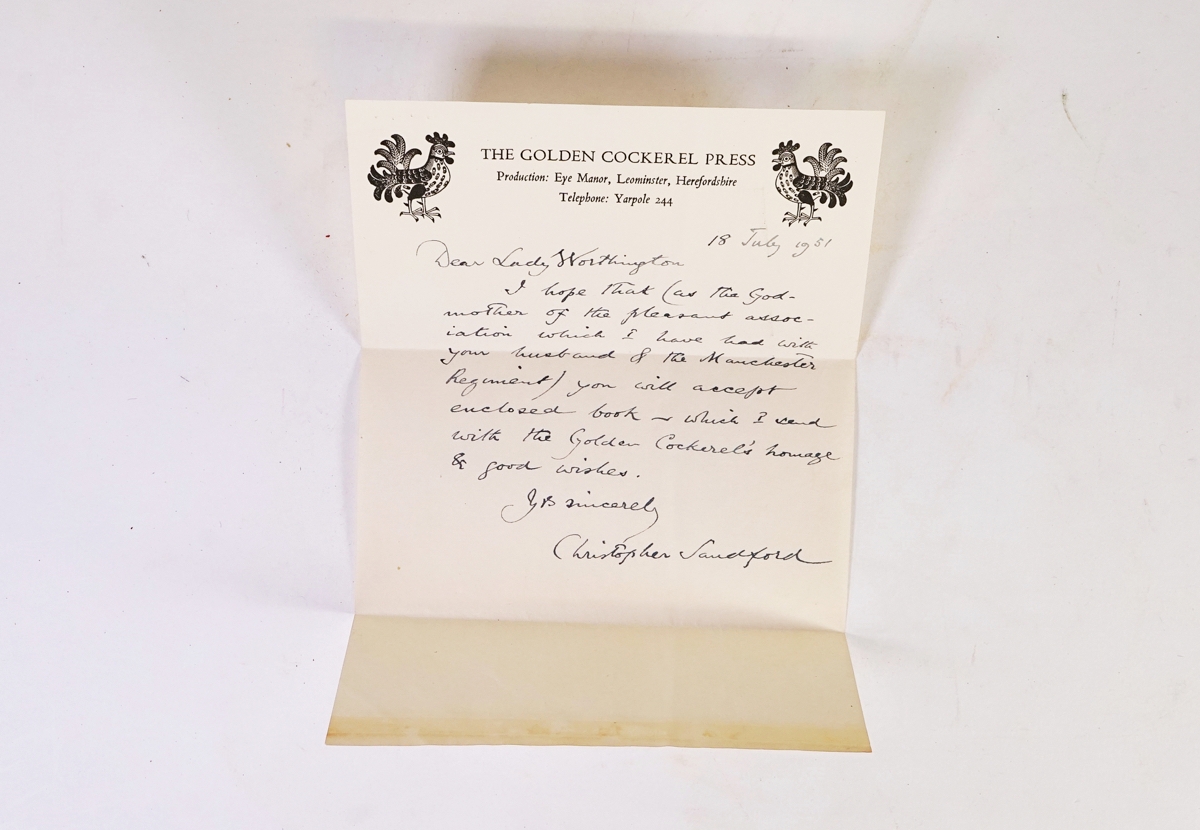 THE GOLDEN COCKEREL PRESS
Production: Eye Manor, Leominster, Herefordshire
Telephone: Yarpole 244
18 July 1951
Dear Lady Worthington
I hope that (as the God-
mother of the pleasant assoc-
iation which I have had with
your husband & the Manchester
Regiment) you will accept
enclosed book – which I send
with the Golden Cockerel's homage
& good wishes.
Yrs sincerely
Christopher Sandford